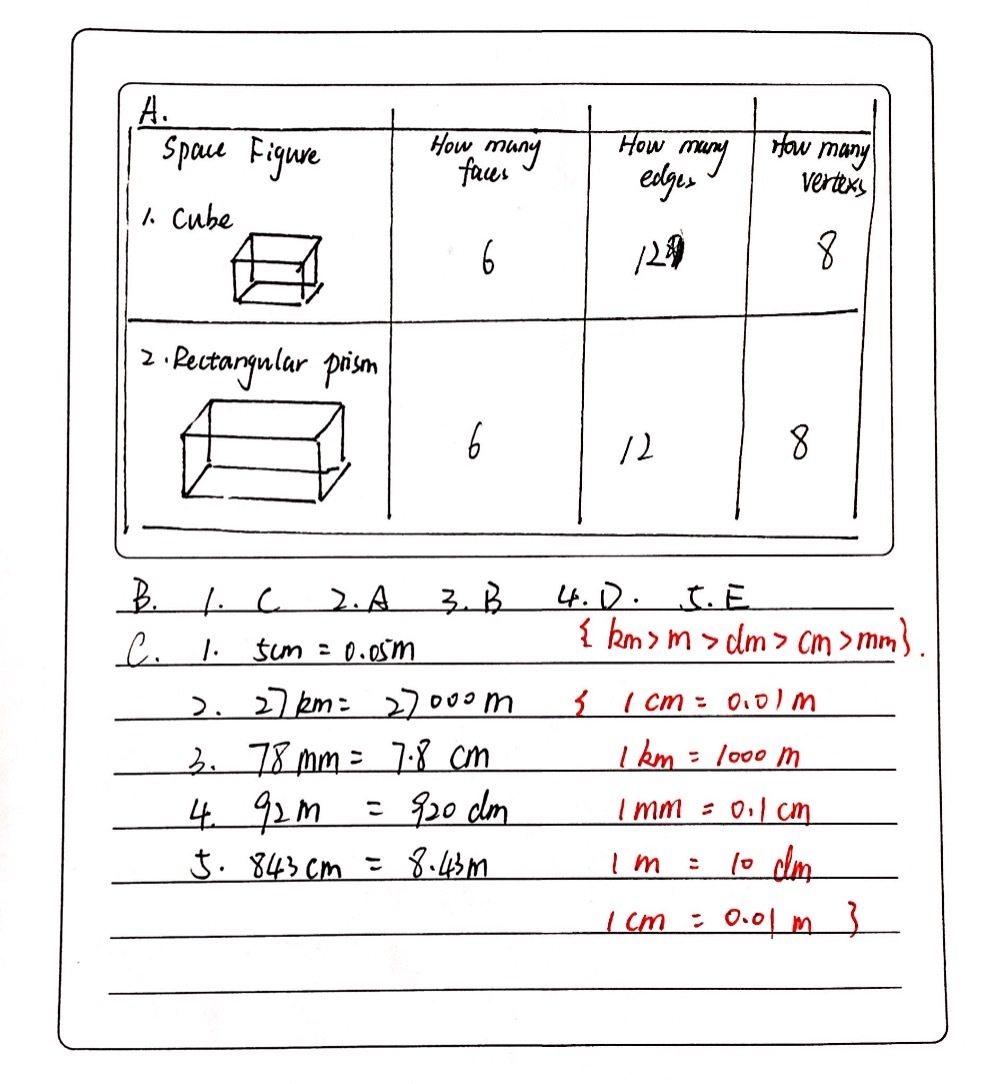 A.
Space Figure How many faces How many edges How many vertexs
1. Cube 6 12 8
2. Rectangular prism 6 12 8
B. 1. C 2. A 3. B 4. D. 5. E
{ km > m > dm > cm > mm }.
C. 1. 5cm = 0.05m
2. 27km = 27000m { 1 cm = 0.01 m
3. 78 mm = 7.8 cm 1 km = 1000 m
4. 92m = 920 dm 1 mm = 0.1 cm
5. 843 cm = 8.43m 1 m = 10 dm
1 cm = 0.01 m }